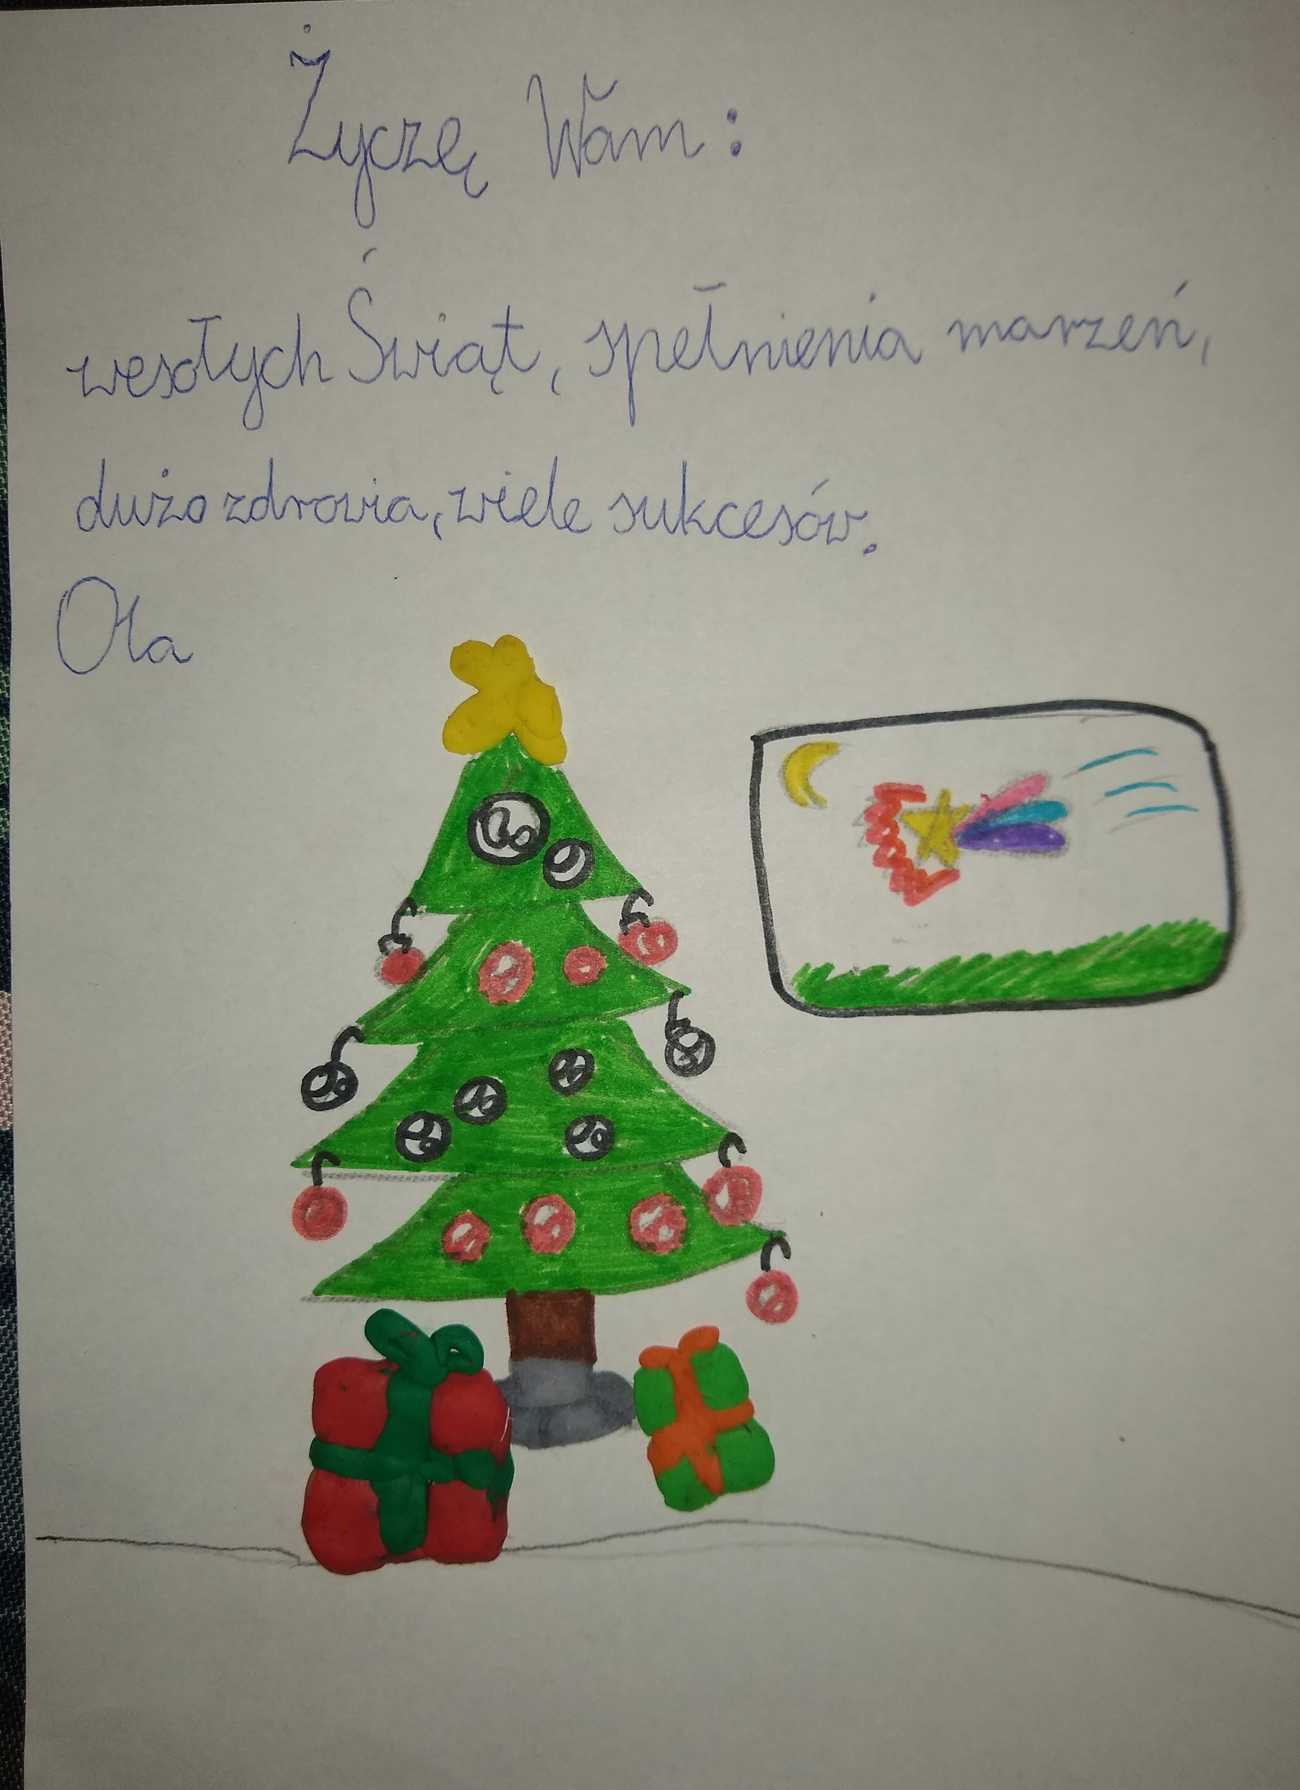 Życzę Wam:
wesołych Świąt, spełnienia marzeń,
dużo zdrowia, wiele sukcesów.
Ola